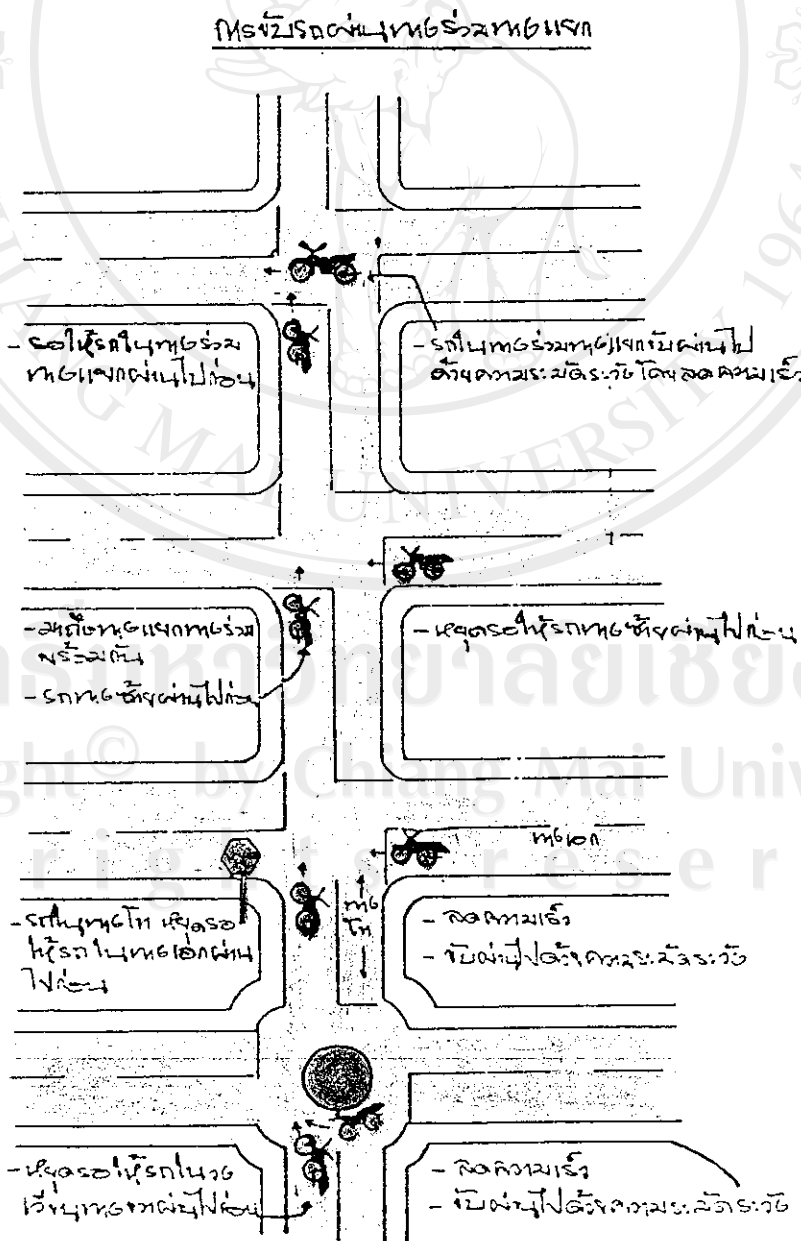 การขับรถผ่านทางร่วมทางแยก
- รอให้รถในทางร่วม
ทางแยกผ่านไปก่อน
- รถในทางร่วมทางแยกขับผ่านไป
ด้วยความระมัดระวัง โดยลดความเร็ว
- มาถึงทางแยกทางร่วม
พร้อมกัน
- รถทางซ้ายผ่านไปก่อน
- หยุดรอให้รถทางซ้ายผ่านไปก่อน
ทางเอก
ทาง
โท
- รถในทางโท หยุดรอ
ให้รถในทางเอกผ่าน
ไปก่อน
- ลดความเร็ว
- ขับผ่านไปด้วยความระมัดระวัง
- หยุดรอให้รถในวง
เวียนทางขวาผ่านไปก่อน
- ลดความเร็ว
- ขับผ่านไปด้วยความระมัดระวัง
CHIANG MAI UNIVERSITY 1964
มหาวิทยาลัยเชีย
ght© by Chiang Mai Univ
rights reser